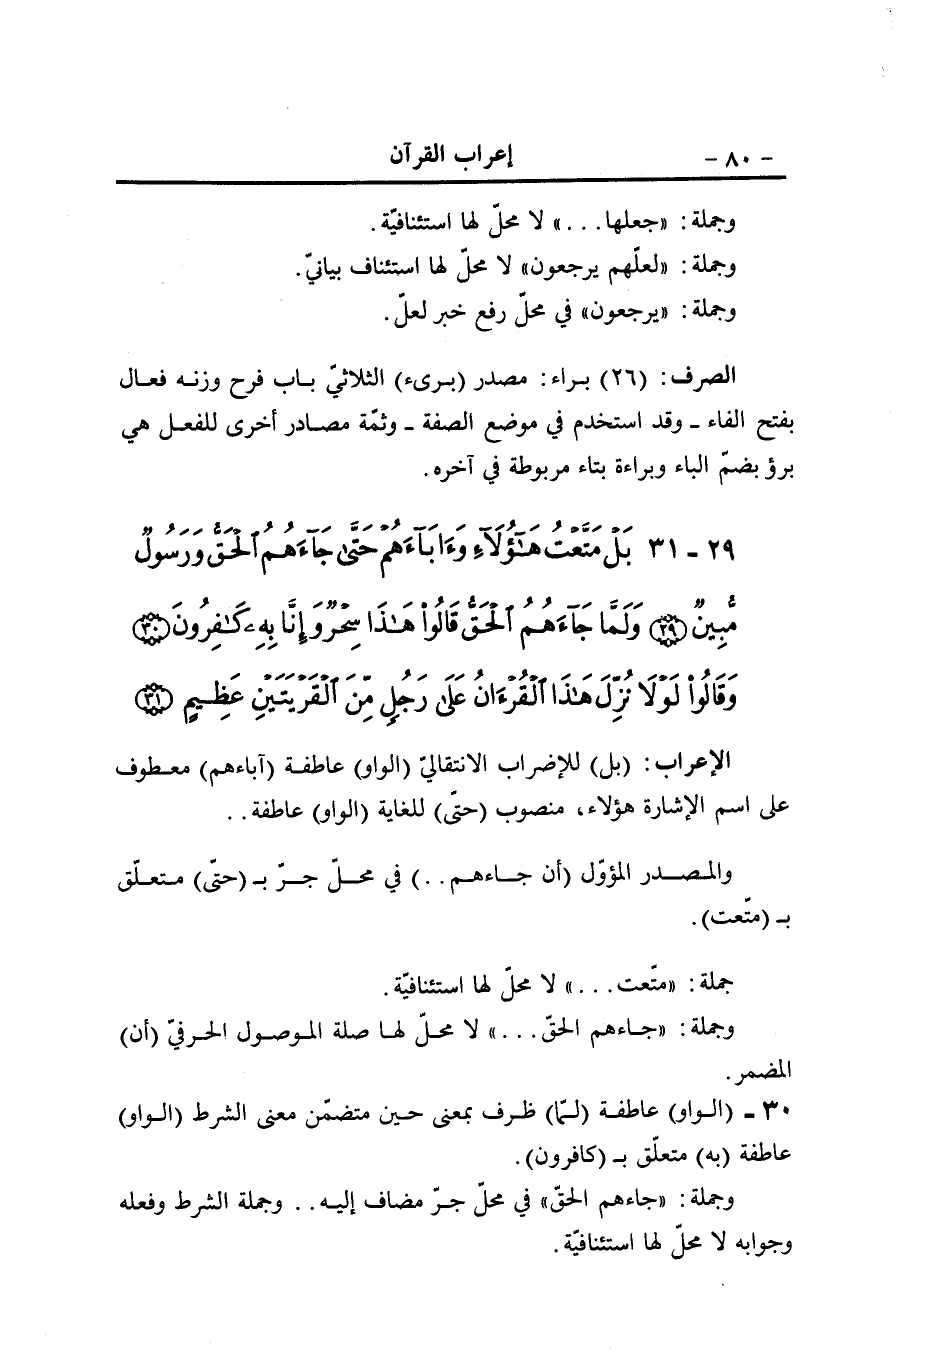 - ٨٠ - إعراب القرآن
وجملة: «جعلها...» لا محلّ لها استئنافيّة.
وجملة: «لعلّهم يرجعون» لا محلّ لها استئناف بيانيّ.
وجملة: «يرجعون» في محلّ رفع خبر لعلّ.
الصرف: (٢٦) براء: مصدر (برىء) الثلاثيّ باب فرح وزنه فعال
بفتح الفاء ـ وقد استخدم في موضع الصفة ـ وثمّة مصادر أخرى للفعل هي
برؤ بضمّ الباء وبراءة بتاء مربوطة في آخره.
٢٩ - ٣١ بَلْ مَتَّعْتُ هَـٰٓؤُلَآءِ وَءَابَآءَهُمْ حَتَّىٰ جَآءَهُمُ ٱلْحَقُّ وَرَسُولٌ
مُّبِينٌ ﴿٢٩﴾ وَلَمَّا جَآءَهُمُ ٱلْحَقُّ قَالُوا۟ هَـٰذَا سِحْرٌ وَإِنَّا بِهِۦ كَـٰفِرُونَ ﴿٣٠﴾
وَقَالُوا۟ لَوْلَا نُزِّلَ هَـٰذَا ٱلْقُرْءَانُ عَلَىٰ رَجُلٍ مِّنَ ٱلْقَرْيَتَيْنِ عَظِيمٍ ﴿٣١﴾
الإعراب: (بل) للإضراب الانتقاليّ (الواو) عاطفة (آباءهم) معطوف
على اسم الإشارة هؤلاء، منصوب (حتّى) للغاية (الواو) عاطفة..
والمصدر المؤوّل (أن جاءهم..) في محلّ جرّ بـ (حتّى) متعلّق
بـ (متّعت).
جملة: «متّعت...» لا محلّ لها استئنافيّة.
وجملة: «جاءهم الحقّ...» لا محلّ لها صلة الموصول الحرفيّ (أن)
المضمر.
٣٠ ـ (الواو) عاطفة (لمّا) ظرف بمعنى حين متضمّن معنى الشرط (الواو)
عاطفة (به) متعلّق بـ (كافرون).
وجملة: «جاءهم الحقّ» في محلّ جرّ مضاف إليه.. وجملة الشرط وفعله
وجوابه لا محلّ لها استئنافيّة.